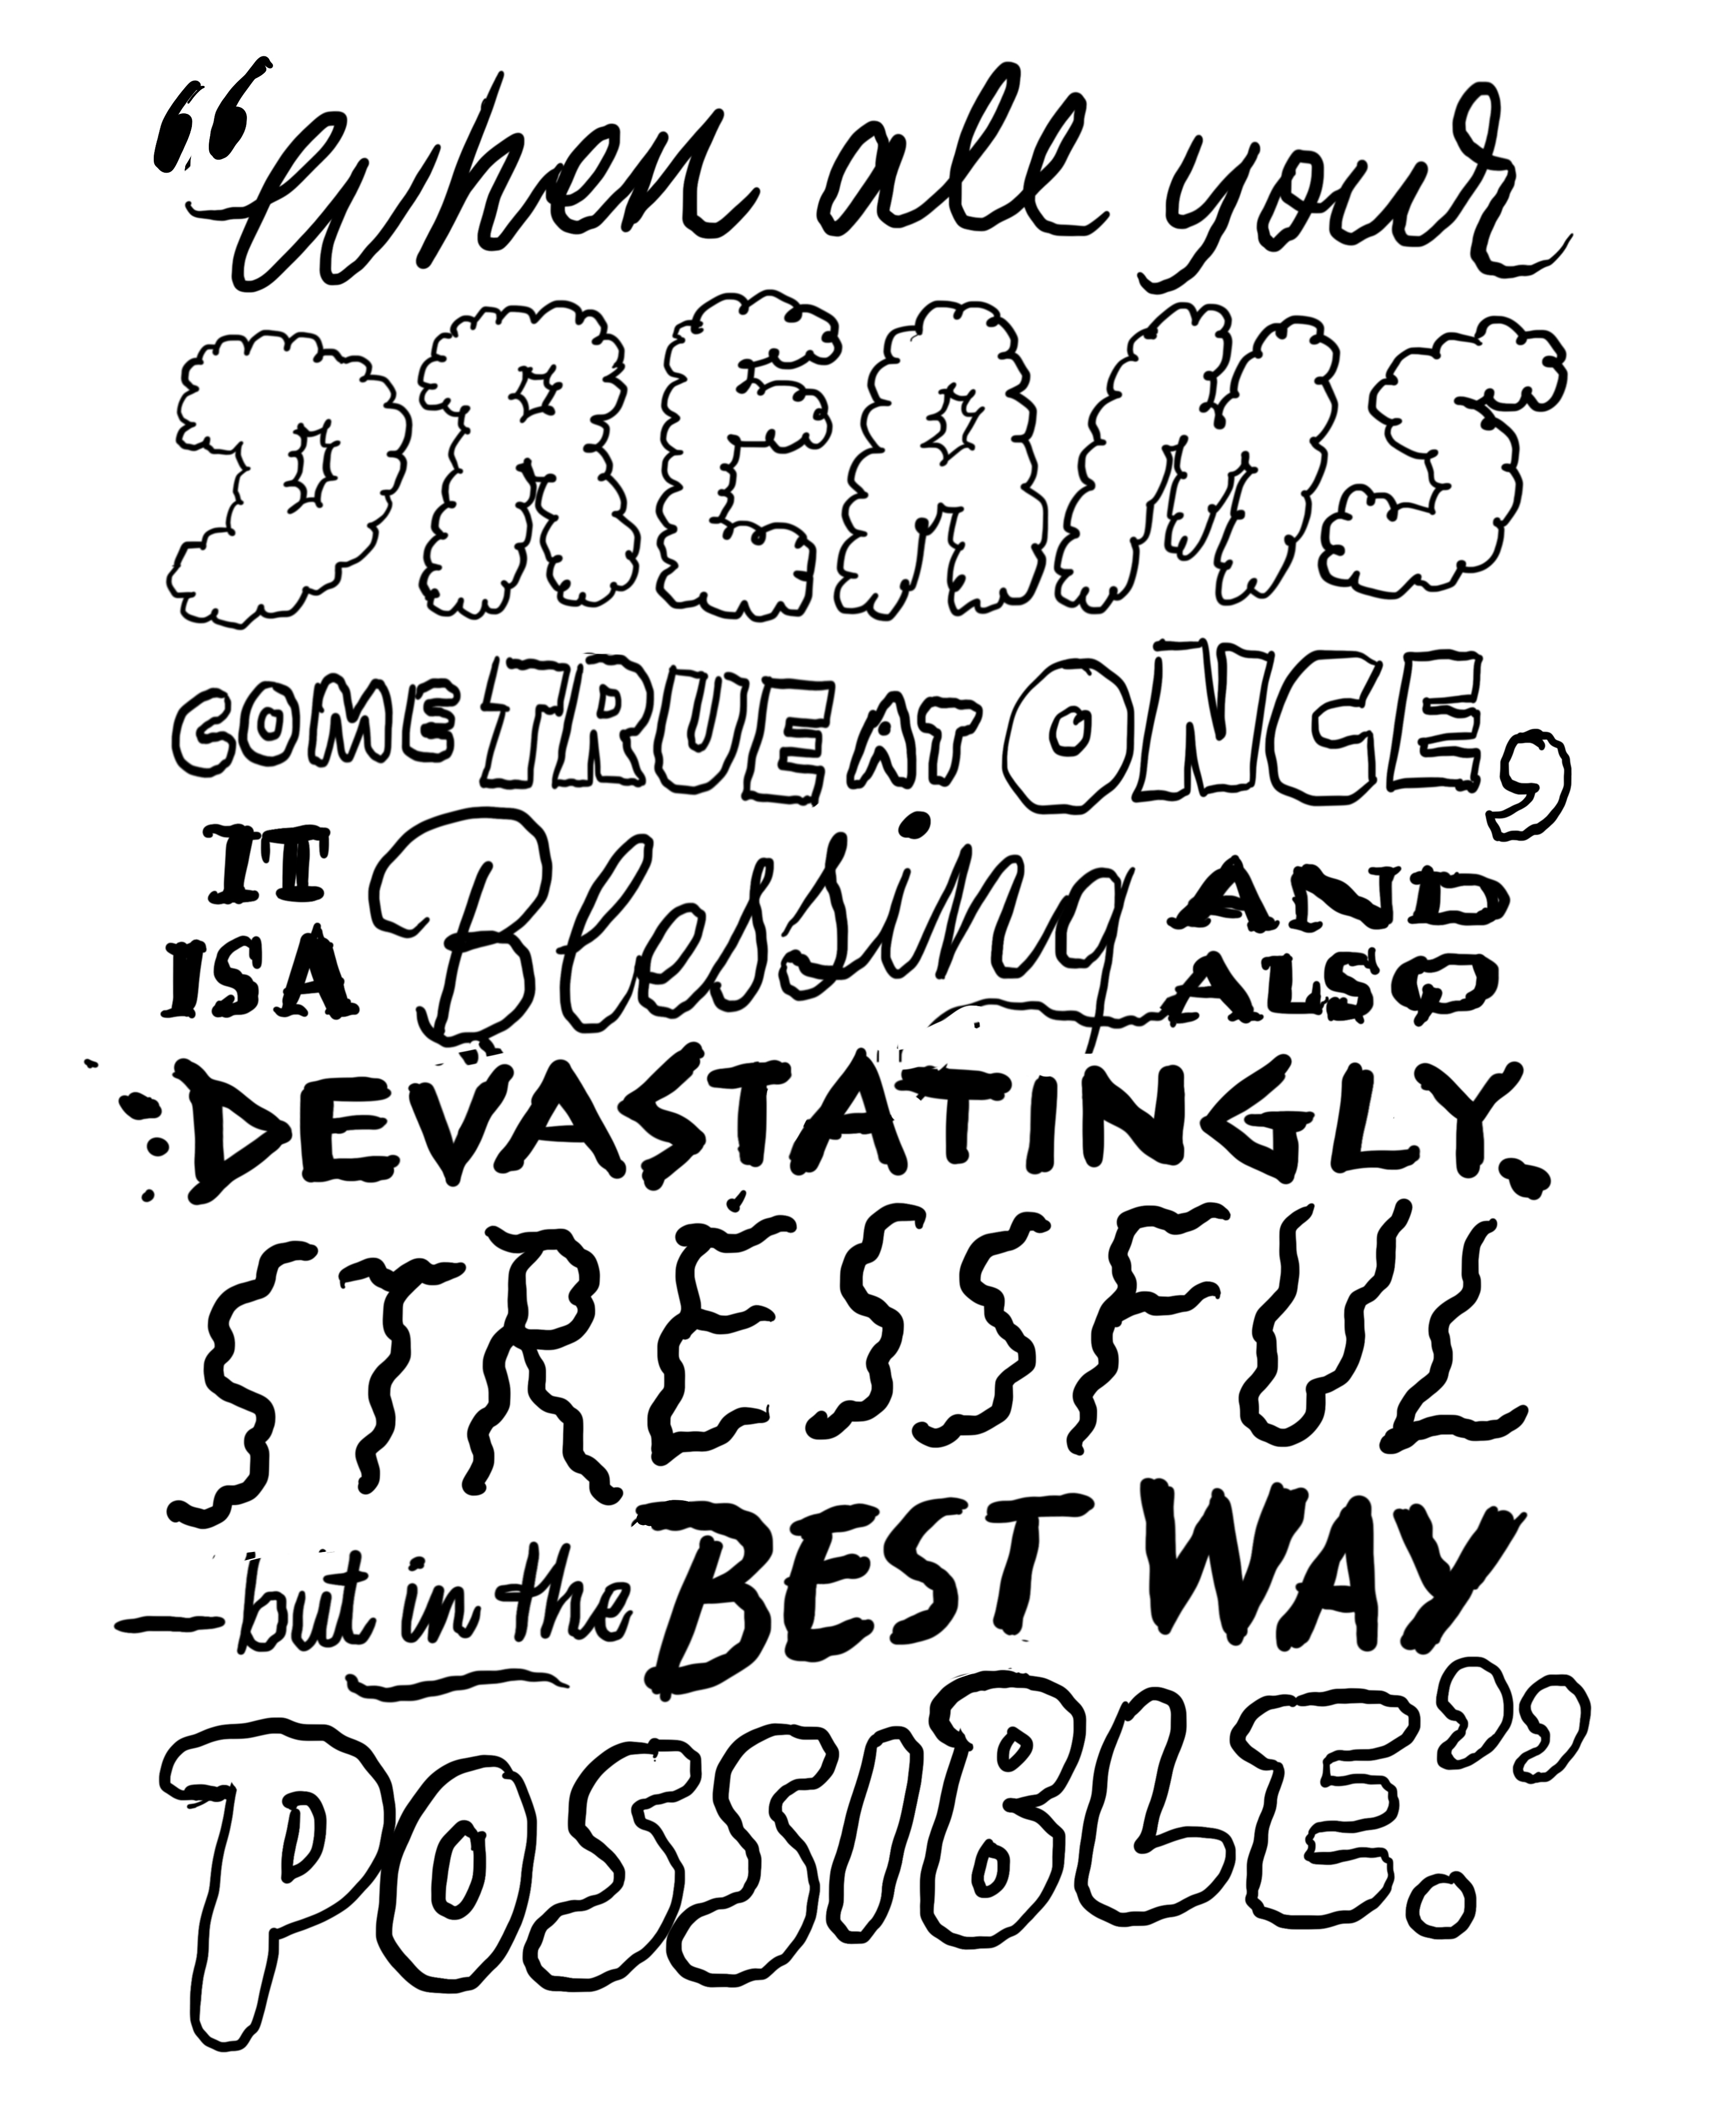 “When all your
DREAMS
COME TRUE AT ONCE,
IT IS A Blessing AND ALSO
DEVASTATINGLY.
STRESSFUL
—but in the BEST WAY
POSSIBLE.”